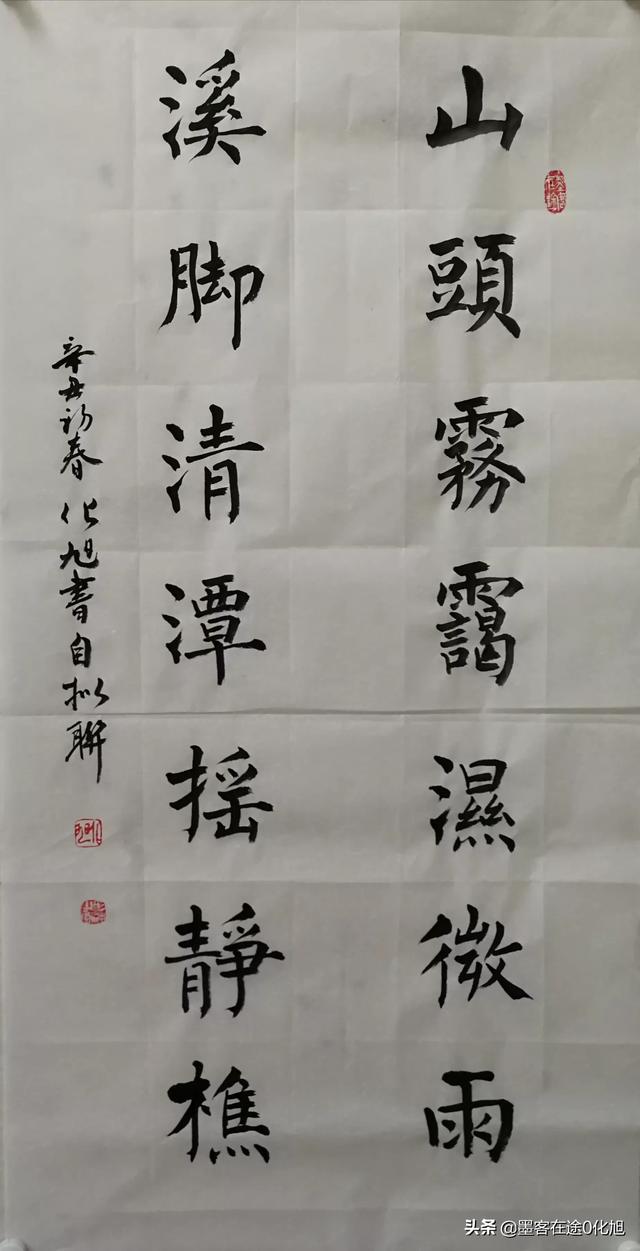 山頭霧靄濕微雨
溪脚清潭摇靜樵
辛丑初春化旭書自拟聯
头条 @墨客在途0化旭